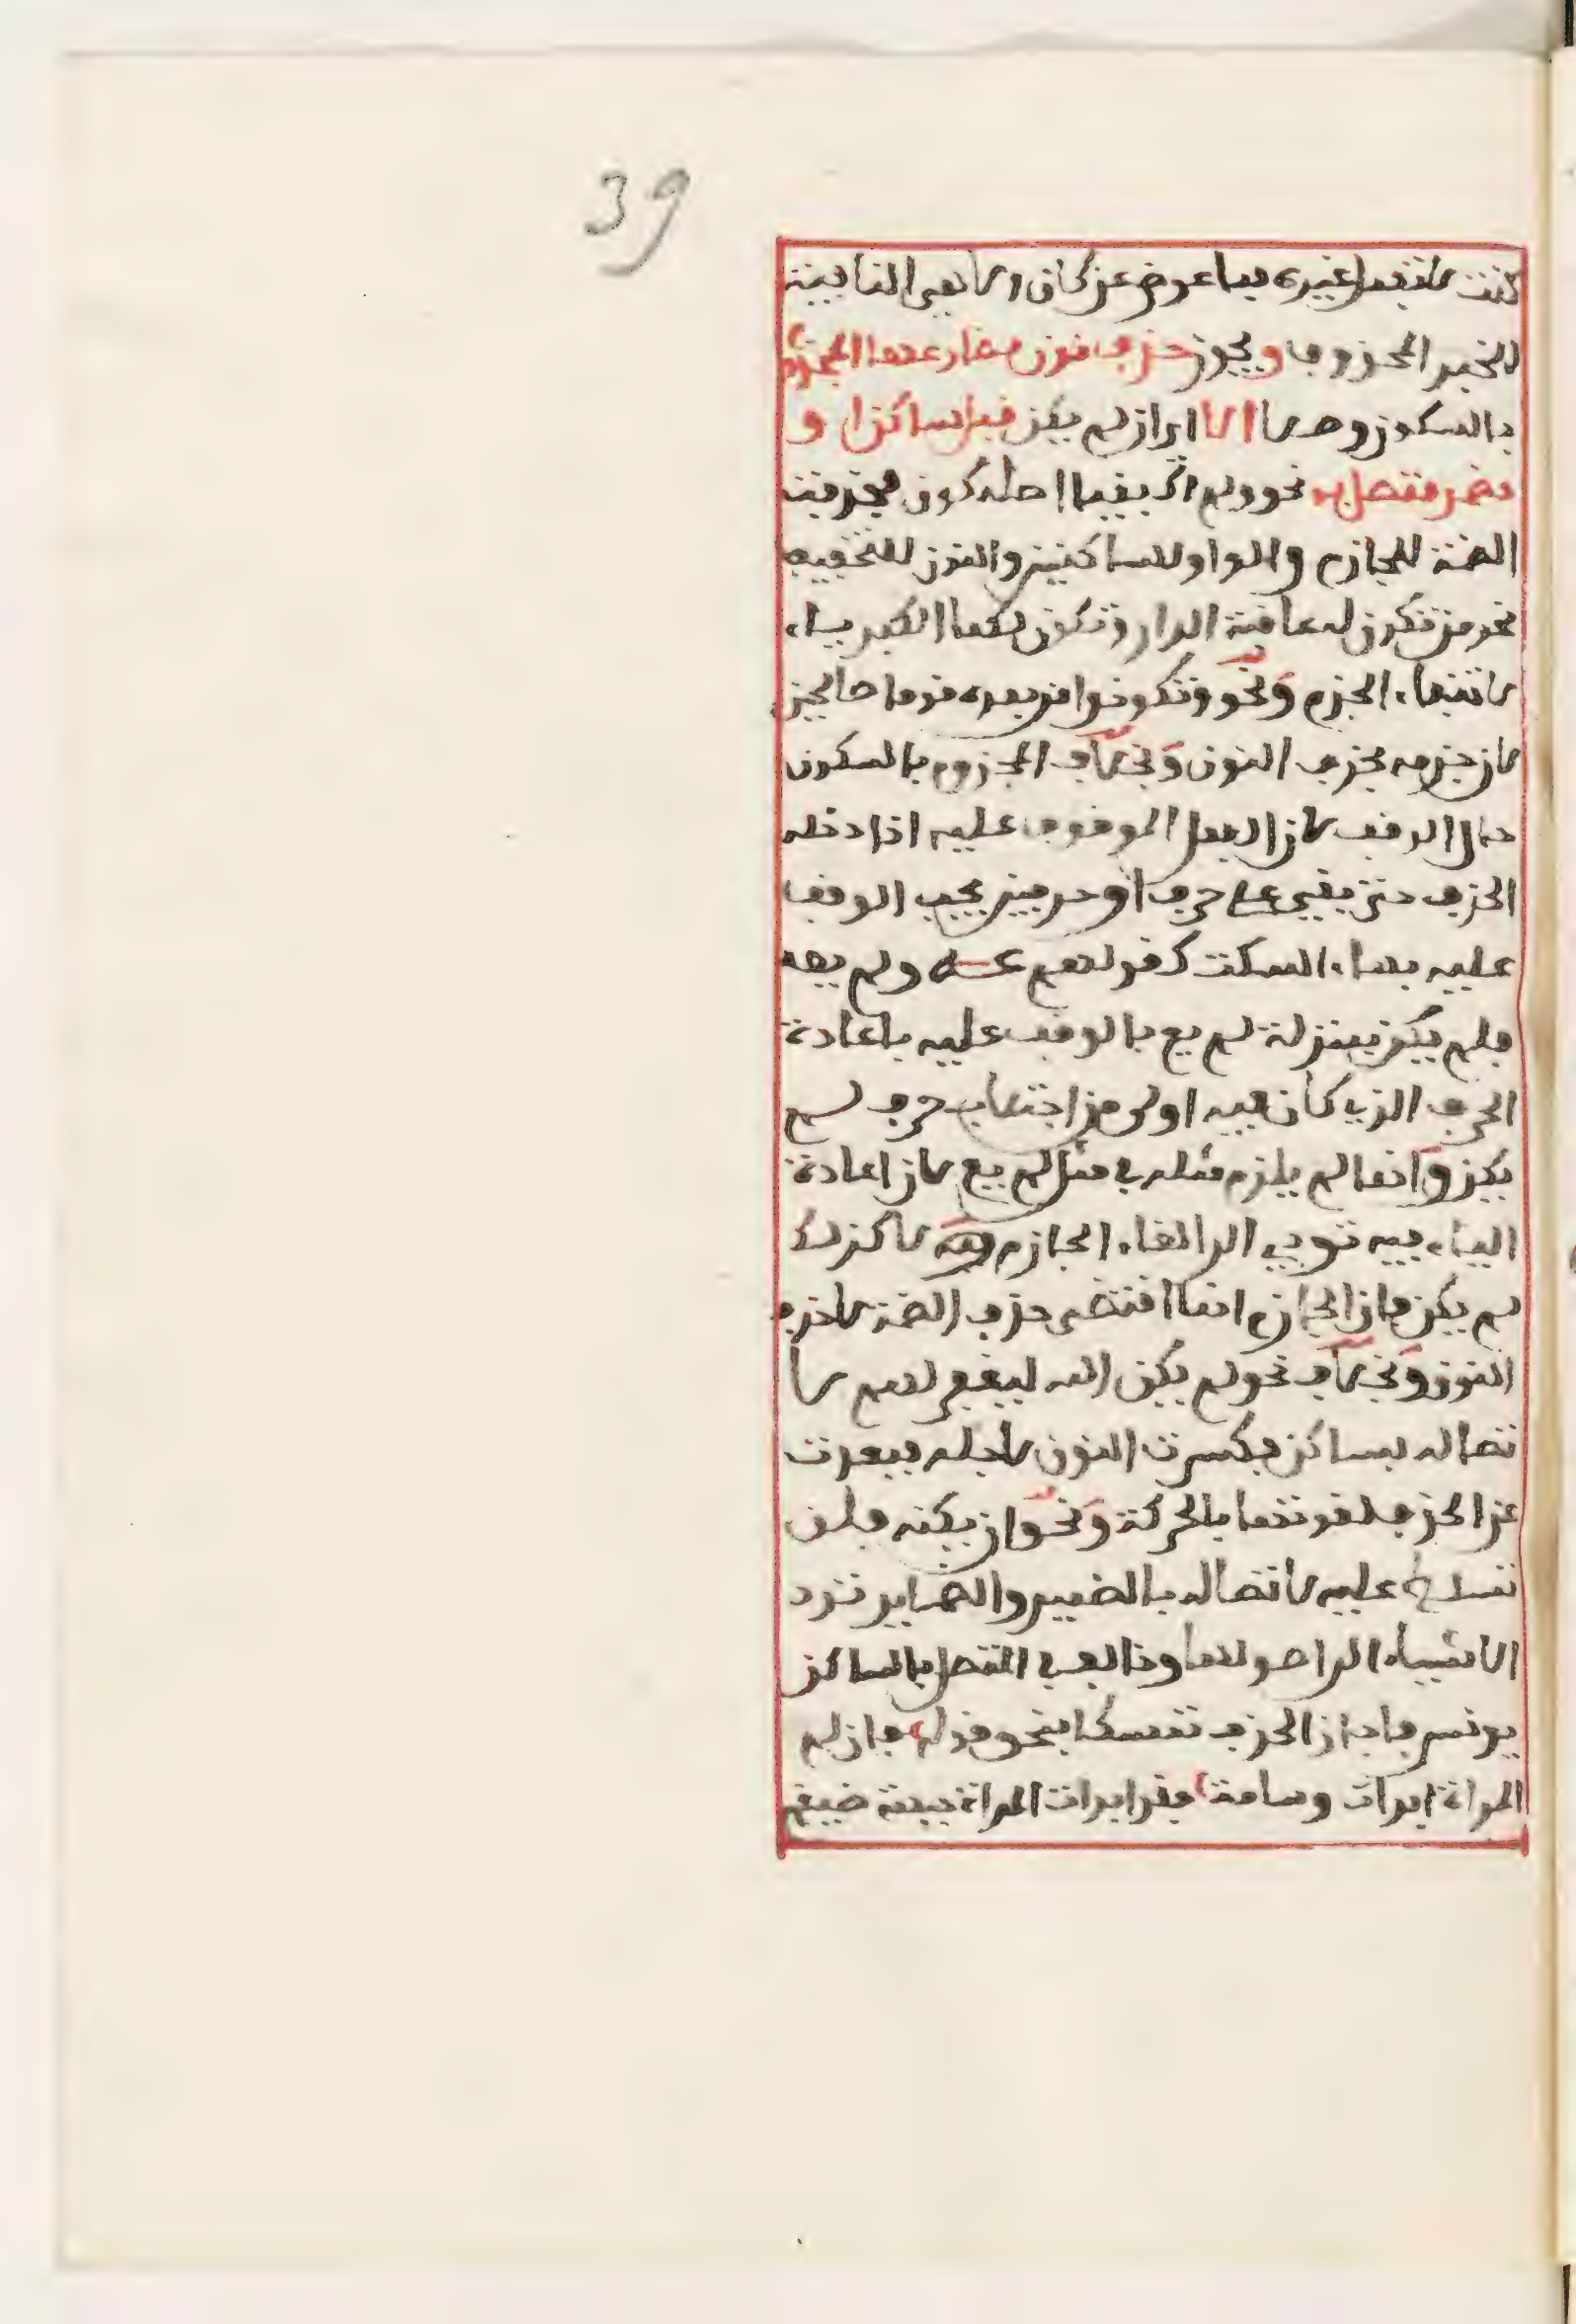 39
كنت لا تفعل غيره فما عوض عن كان ولا هي النافية
للخبر المحذوف ويجوز حذف نون مضارعها المجزوم
بالسكون وصلا الا ايران لم يكن قبل ساكن او
مضمر متصل به نحو ولم اك بغيا اصله اكون فحذفت
الضمة للجازم والواو للساكنين والنون للتخفيف
نحو من تكون له عاقبة الدار وتكون لكما الكبرياء
لانتفاء الجزم ونحو وتكونوا من بعده قوما صالحين
لان جزمه بحذف النون وبخلاف المجزوم بالسكون
حال الوقف لان الفعل الموقوف عليه اذا دخله
الحذف حتى بقي على حرف او حرفين يجب الوقف
عليه بهاء السكت كقولهم عه ولم يعه
فلم يكن بمنزلة لم يع بالوقف عليه باعادة
الحرف الذي كان فيه اولى من اجتلاب حرف لم
يكن وانما لم يلزم مثله في مثل لم يع لان اعادة
الياء فيه تودي الى الغاء الجازم ولا كذلك
لم يكن فان الجازم انما اقتضى حذف الضمة لا حذف
النون وبخلاف نحو لم يكن الله ليغفر لهم لا
تصاله بساكن فكسرت النون لاجله فبعدت
عن الحذف لقوتها بالحركة ونحو ان يكنه فلن
تسلط عليه لاتصاله بالضمير والضماير ترد
الاشياء الى اصولها وخالف في المتصل بالساكن
يونس فاجاز الحذف تمسكا بنحو قوله فان لم
المراة ابدت وسامة فقد ابدت المراة جبهة ضيغم